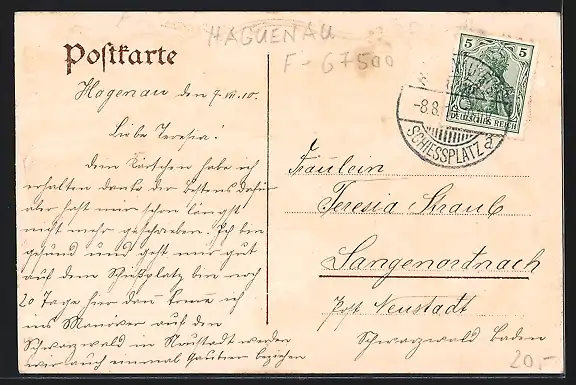 HAGUENAU
F-67500
Postkarte
5 5
DEUTSCHES REICH
-8.8.
SCHIESSPLATZ a
Hagenau den 7.VIII.10.
Liebe Teresia!
Dein Kärtchen habe ich
erhalten danke dir bestens dafür
aber hast mir schon längst
nicht mehr geschrieben. Ich bin
gesund und geht mir gut
auf dem Schießplatz bin noch
20 Tage hier dann komme ich
ins Manöver auf den
Schwarzwald in Neustadt werden
wir auch einmal Quartier beziehen
Fräulein
Teresia Straub
Langenordnach
Post Neustadt
Schwarzwald Baden
20,-